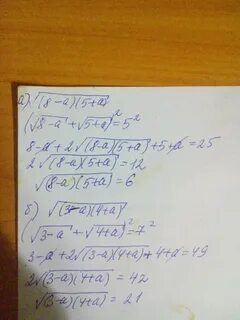 а) √(8-a)(5+a)
(√8-a + √5+a)² = 5²
8-a + 2√(8-a)(5+a) + 5+a = 25
2√(8-a)(5+a) = 12
√(8-a)(5+a) = 6
б) √(3-a)(4+a)
(√3-a + √4+a)² = 7²
3-a + 2√(3-a)(4+a) + 4+a = 49
2√(3-a)(4+a) = 42
√(3-a)(4+a) = 21